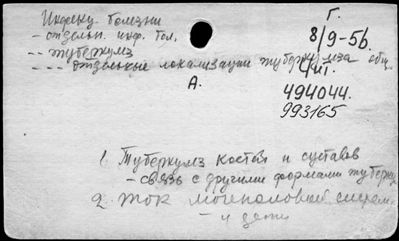 Инфекц. болезни
Г.
- отдельн. инф. бол.
8/9-56.
-- туберкулз
--- отдельные локализации туберкулеза общ.
А.
494044.
993165
1 Туберкулз костей и суставов
- связь с другими формами туберк.
2. ток мочеполовой систем.
- у дети